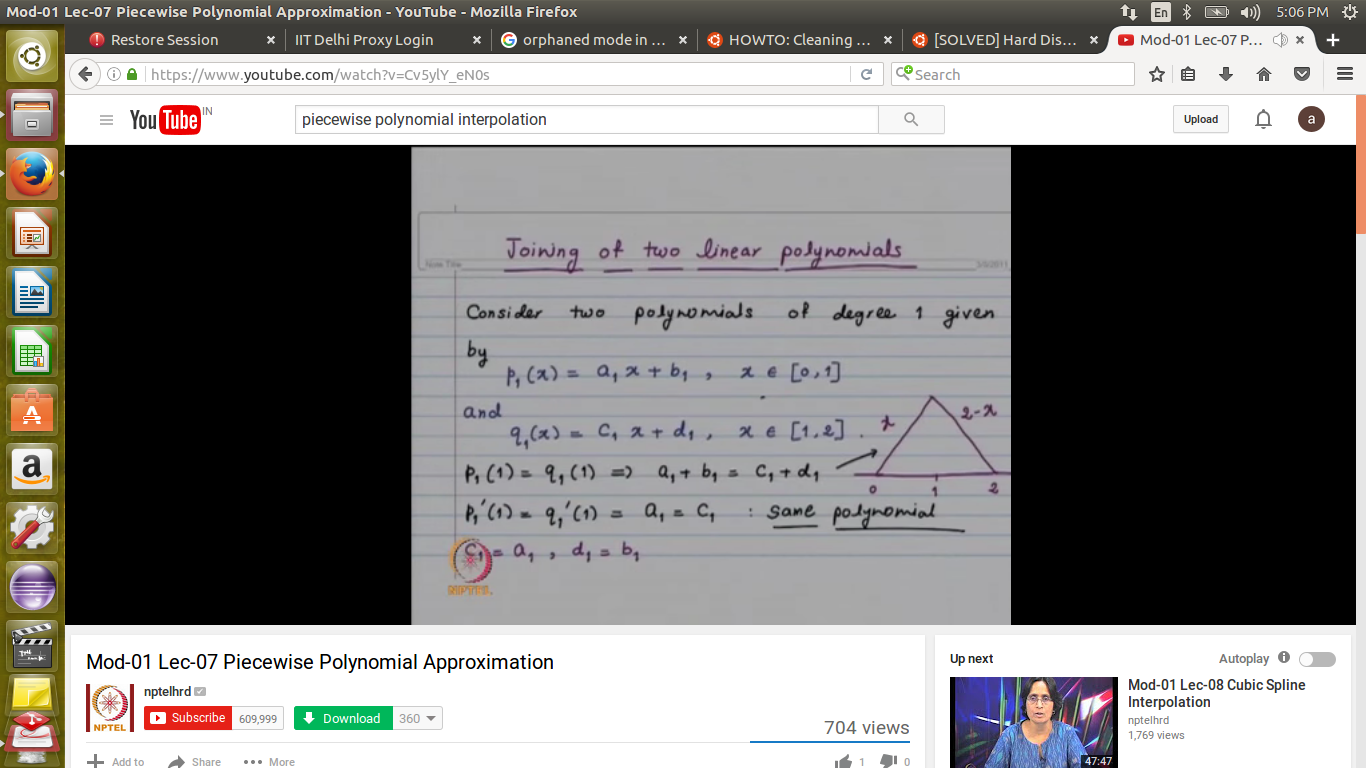 Mod-01 Lec-07 Piecewise Polynomial Approximation - YouTube - Mozilla Firefox
En
5:06 PM
Restore Session
IIT Delhi Proxy Login
orphaned mode in ...
HOWTO: Cleaning ...
[SOLVED] Hard Dis...
Mod-01 Lec-07 P...
https://www.youtube.com/watch?v=Cv5ylY_eN0s
Search
YouTube IN
piecewise polynomial interpolation
Upload
a
Note Title
Joining of two linear polynomials
Consider two polynomials of degree 1 given
by
p₁(x) = a₁ x + b₁ , x ∈ [0,1]
and
q₁(x) = C₁ x + d₁ , x ∈ [1,2] .
x
2-x
p₁(1) = q₁(1) => a₁ + b₁ = C₁ + d₁
0 1 2
p₁'(1) = q₁'(1) = a₁ = C₁ : same polynomial
C₁ = a₁ , d₁ = b₁
NPTEL
Mod-01 Lec-07 Piecewise Polynomial Approximation
NPTEL
nptelhrd
Subscribe 609,999
Download 360
704 views
Add to
Share
More
1
0
Up next
Autoplay
Mod-01 Lec-08 Cubic Spline
Interpolation
nptelhrd
1,769 views
47:47